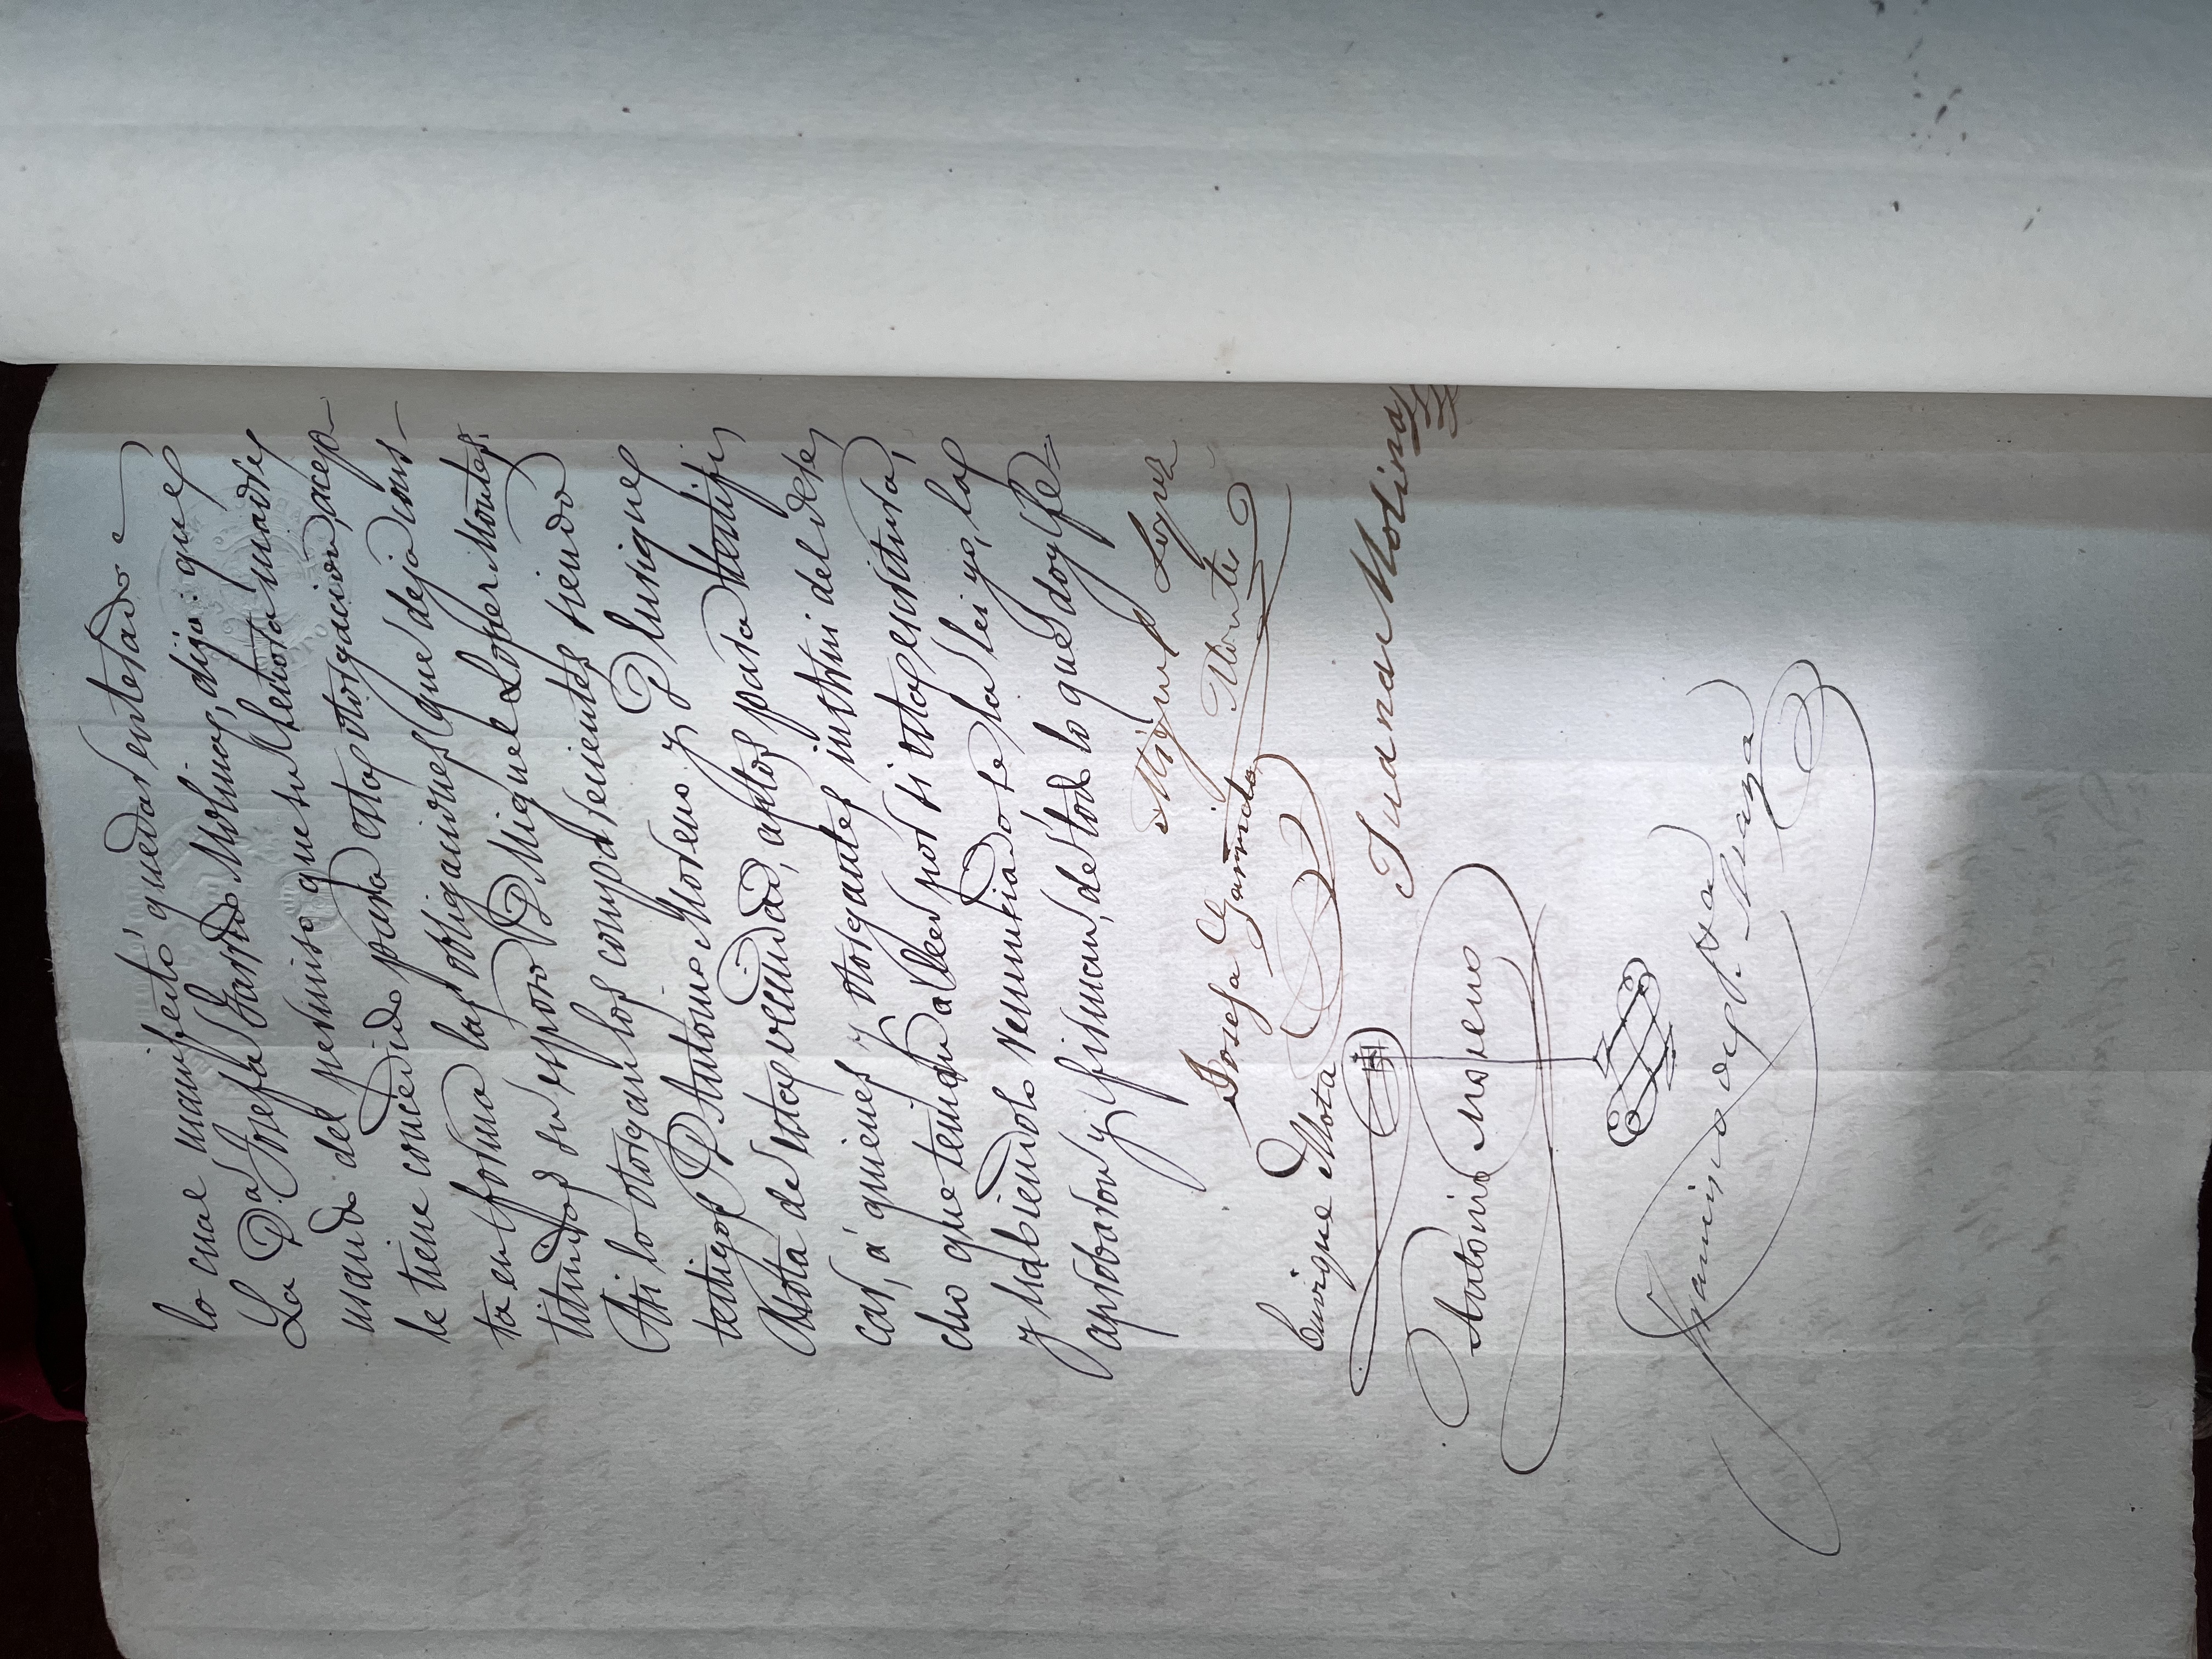 lo cual manifestó quedar enterado =
La D.ª Josefa Garrido Molina, dijo: que
usando del permiso que su Señora madre
le tiene concedido para esta otorgacion, acep-
ta en forma las obligaciones que deja cons-
tituidas su esposo D Miguel Lopez Montes.
Asi lo otorgan los comparecientes siendo
testigos D Antonio Moreno y D Enrique
Mota de esta vecindad, aptos para testifi
car, á quienes y otorgantes instruí del dere
cho que tenian a leer por si esta escritura,
y habiendolo renunciado se la lei yo, la
aprobaron y firman, de todo lo que doy fé=
Miguel Lopez
Montes
Josefa Garrido
Enrique Mota
Juana Molina
Antonio Moreno
Francisco de P.